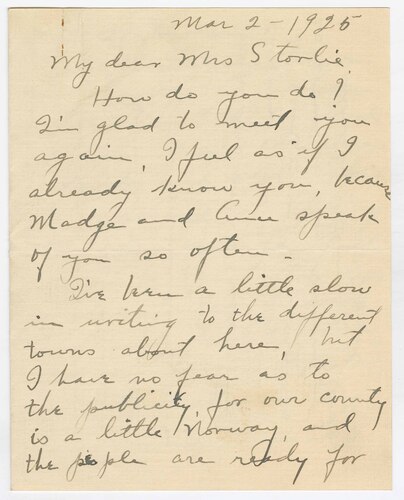 Mar 2 - 1925
My dear Mrs Storlie,
How do you do?
I'm glad to meet you
again, I feel as if I
already know you, because
Madge and Anne speak
of you so often.
I've been a little slow
in writing to the different
towns about here, but
I have no fear as to
the publicity, for our county
is a little Norway, and
the people are ready for